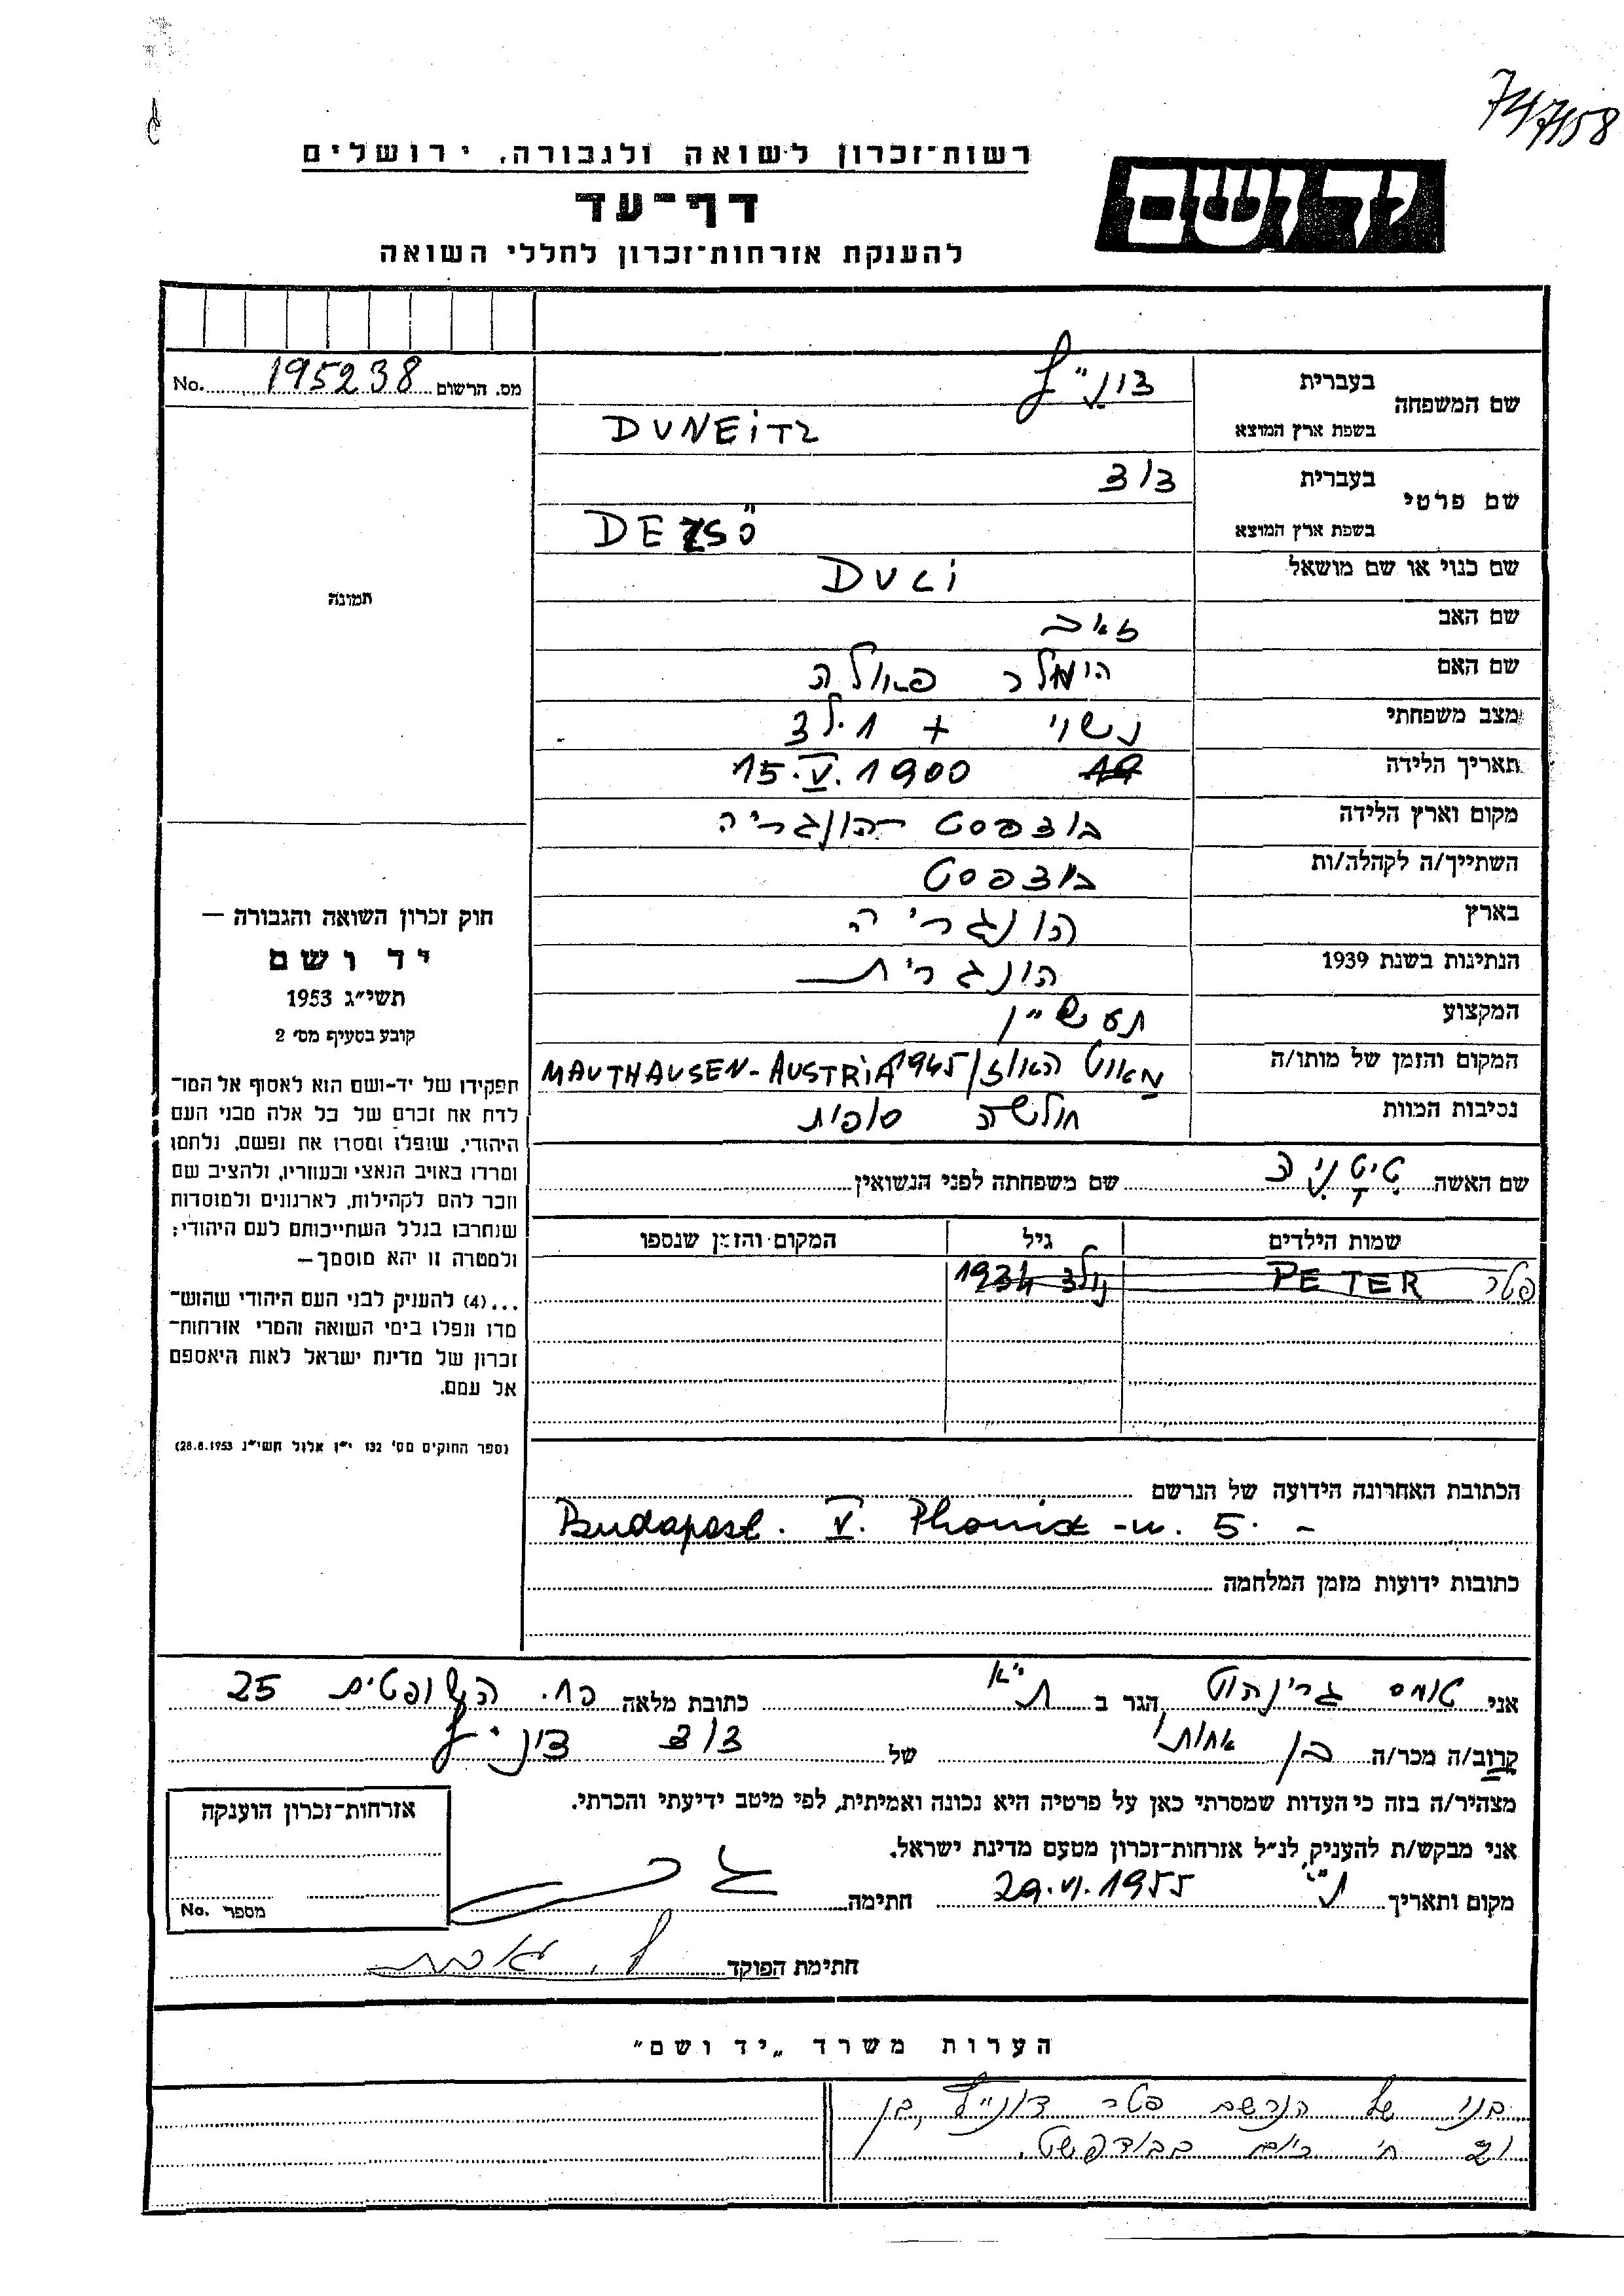 747158
רשות־זכרון לשואה ולגבורה, ירושלים
יד ושם
דף־עד
להענקת אזרחות־זכרון לחללי השואה
מס. הרשום 195238 No.
תמונה
חוק זכרון השואה והגבורה —
יד ושם
תשי״ג 1953
קובע בסעיף מס׳ 2
תפקידו של יד־ושם הוא לאסוף אל המו־
לדת את זכרם של כל אלה מבני העם
היהודי, שנפלו ומסרו את נפשם, נלחמו
ומרדו באויב הנאצי ובעוזריו, ולהציב שם
וזכר להם לקהילות, לארגונים ולמוסדות
שנחרבו בגלל השתייכותם לעם היהודי;
ולמטרה זו יהא מוסמך —
...(4) להענין לבני העם היהודי שהוש־
מדו ונפלו בימי השואה והמרי אזרחות־
זכרון של מדינת ישראל לאות היאספם
אל עמם.
(ספר החוקים מס׳ 132 י״ז אלול תשי״ג 28.8.1953)
שם המשפחה בעברית דוני״ץ
בשפת ארץ המוצא DUNEITZ
שם פרטי בעברית דוד
בשפת ארץ המוצא DEZSÖ
שם כנוי או שם מושאל DUCI
שם האב זאב
שם האם פאולה
מצב משפחתי נשוי + 1 ילד
תאריך הלידה 15.V.1900
מקום וארץ הלידה בודפסט הונגריה
השתייך/ה לקהלה/ות בודפסט
בארץ הונגריה
הנתינות בשנת 1939 הונגרית
המקצוע תעשיין
המקום והזמן של מותו/ה מאוטהאוזן/1945 MAUTHAUSEN-AUSTRIA
נסיבות המוות חולשה סופית
שם האשה שם משפחתה לפני הנשואין
שמות הילדים גיל המקום והזמן שנספו
פטר PETER נולד 1934
הכתובת האחרונה הידועה של הנרשם
Budapest. V. Phönix-u. 5. -
כתובות ידועות מזמן המלחמה
אני תומס גרינהוט הגר ב ת״א כתובת מלאה רח. השופטים 25
קרוב/ה מכר/ה בן אחותו של דוד דוני״ץ
מצהיר/ה בזה כי העדות שמסרתי כאן על פרטיה היא נכונה ואמיתית, לפי מיטב ידיעתי והכרתי.
אני מבקש/ת להעניק לנ״ל אזרחות־זכרון מטעם מדינת ישראל.
מקום ותאריך ת״א 29.VI.1955 חתימה
חתימת הפוקד
אזרחות־זכרון הוענקה
מספר No.
הערות משרד „יד ושם״
בנו של הנרשם פטר דוני״ץ, בן
21 חי כיום בבודפשט.